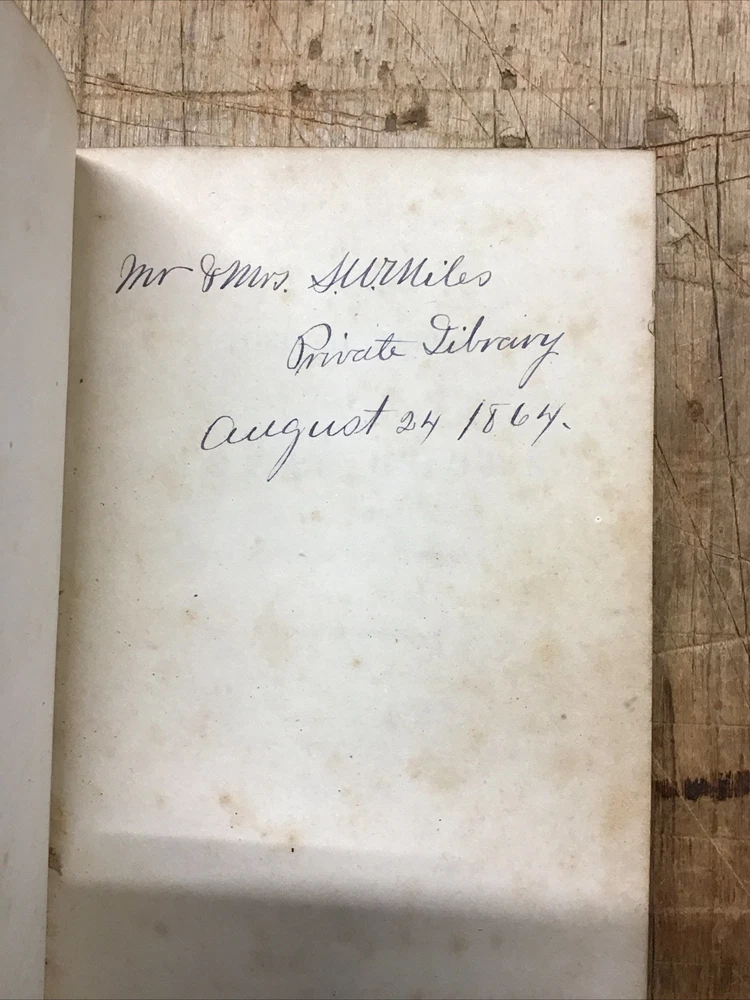 Mr & Mrs. S.W. Miles
Private Library
August 24 1864.